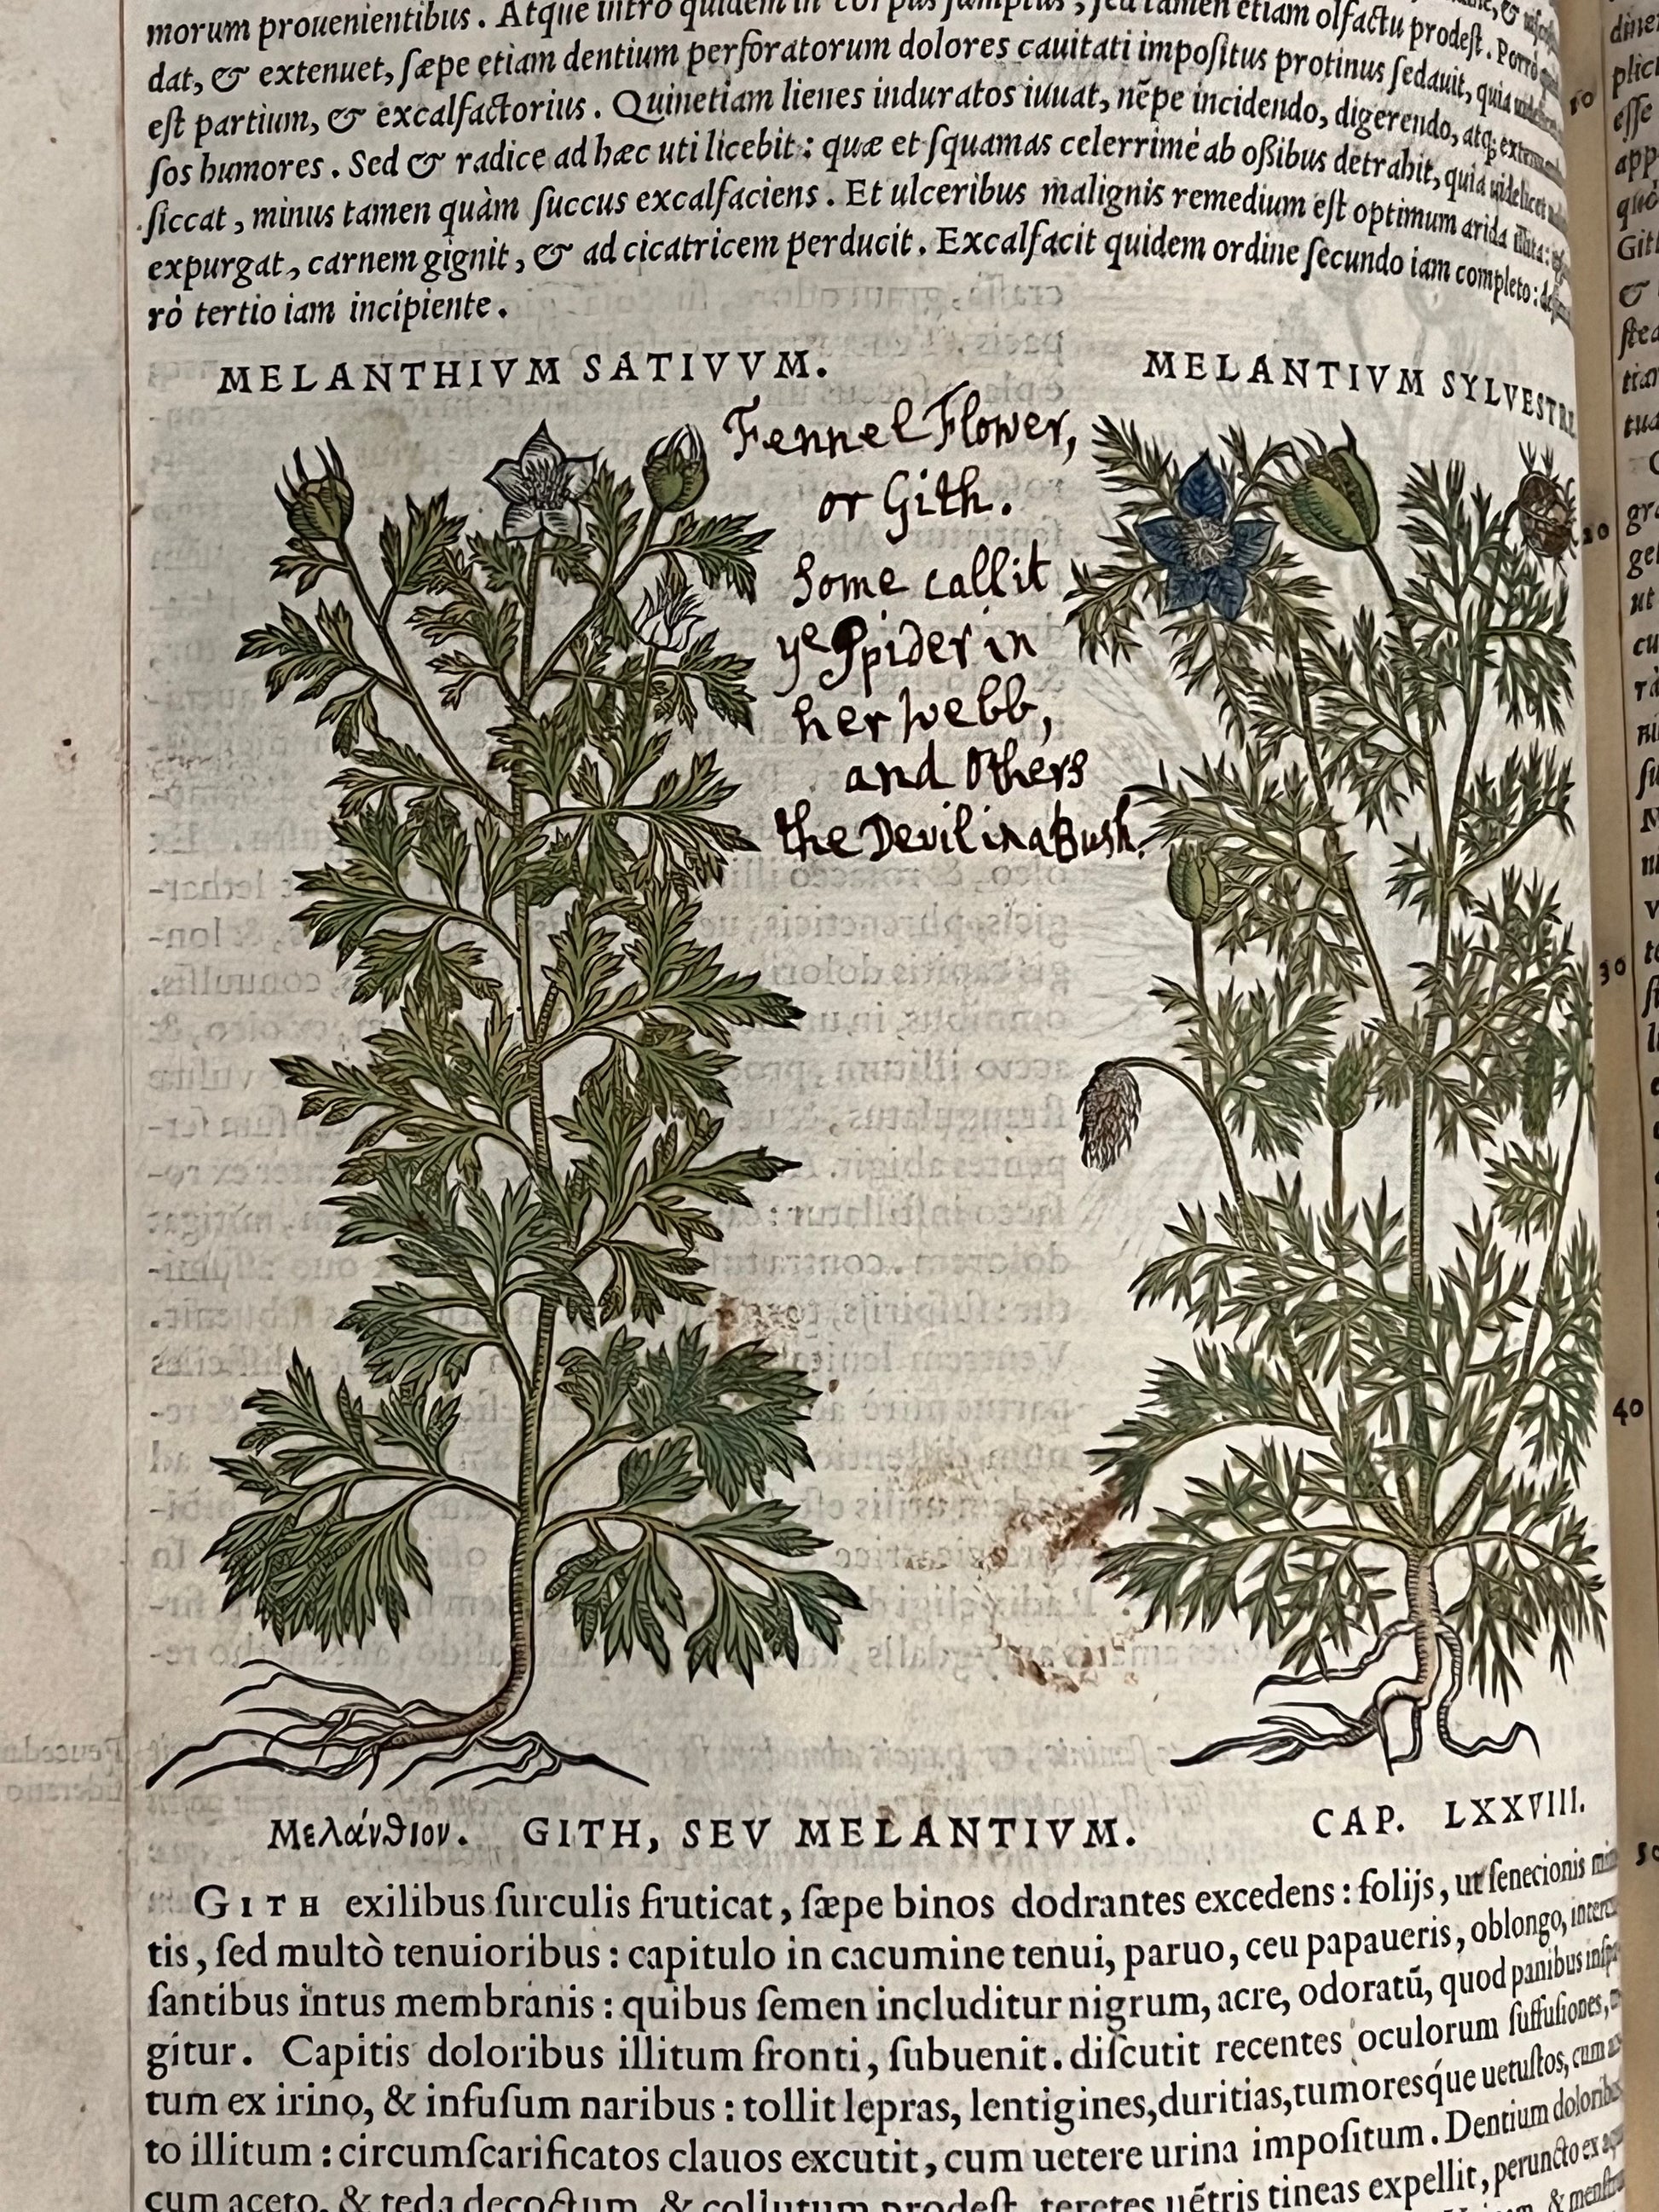 morum prouenientibus. Atque intro quidem in corpus sumptus, sed tamen etiam olfactu prodest. Porrò
dat, & extenuet, sæpe etiam dentium perforatorum dolores cauitati impositus protinus sedauit, quia
est partium, & excalfactorius. Quinetiam lienes induratos iuuat, nēpe incidendo, digerendo, atq;
sos humores. Sed & radice ad hæc uti licebit: quæ et squamas celerrimè ab oßibus detrahit, quia uidelicet
siccat, minus tamen quàm succus excalfaciens. Et ulceribus malignis remedium est optimum arida illita:
expurgat, carnem gignit, & ad cicatricem perducit. Excalfacit quidem ordine secundo iam completo:
rò tertio iam incipiente.
MELANTHIVM SATIVVM.
MELANTIVM SYLVESTRE
Fennel Flower,
or Gith.
Some call it
yᵉ Spider in
her webb,
and Others
the Devil in a Bush.
Μελάνθιον. GITH, SEV MELANTIVM. CAP. LXXVIII.
GITH exilibus surculis fruticat, sæpe binos dodrantes excedens: folijs, ut senecionis
tis, sed multò tenuioribus: capitulo in cacumine tenui, paruo, ceu papaueris, oblongo,
santibus intus membranis: quibus semen includitur nigrum, acre, odoratū, quod panibus
gitur. Capitis doloribus illitum fronti, subuenit. discutit recentes oculorum suffusiones,
tum ex irino, & infusum naribus: tollit lepras, lentigines, duritias, tumoresq́ue uetustos, cum
to illitum: circumscarificatos clauos excutit, cum uetere urina impositum. Dentium doloribus
cum aceto, & teda decoctum, & collutum prodest. teretes uētris tineas expellit, peruncto ex
& menstrua
10
20
30
40